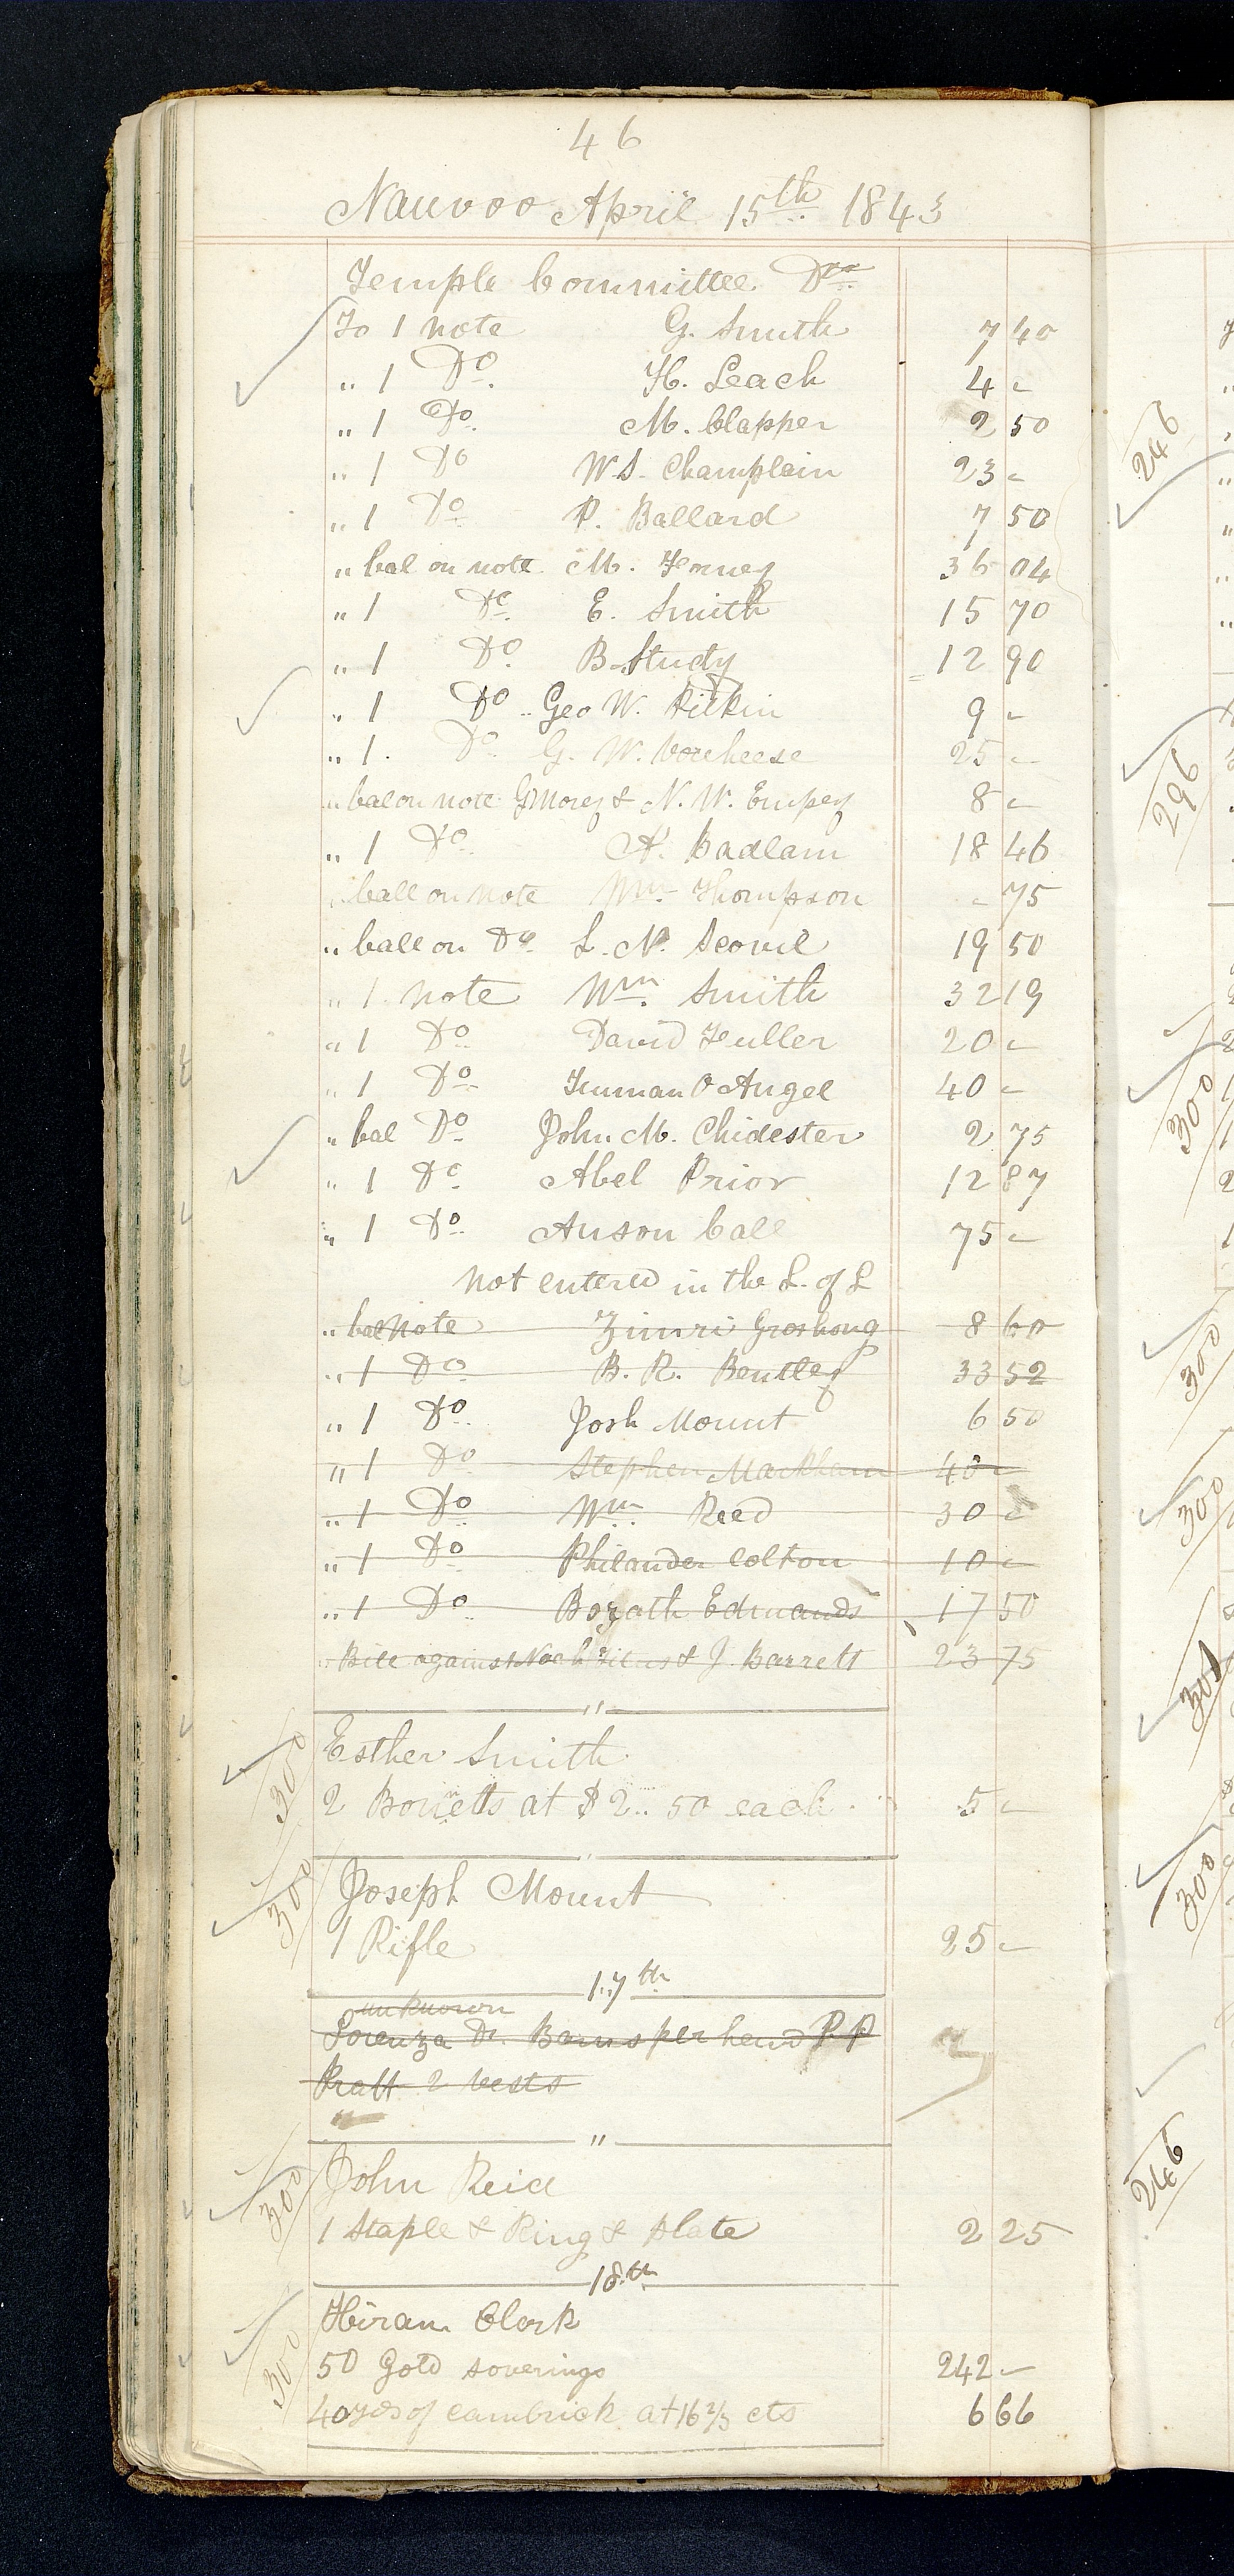 46
Nauvoo April 15th 1843
Temple Committee Dr
To 1 note G. Smith 7 40
" 1 Do. H. Leach 4 -
" 1 Do. M. Clapper 2 50
" 1 Do W.S. Champlain 23 -
" 1 Do. P. Ballard 7 50
" bal on note M. Forney 36 04
" 1 Do. E. Smith 15 70
" 1 Do. B. Study 12 90
" 1 Do " Geo W. Pitkin 9 -
" 1. Do. G. W. Vorcheese 25 -
" bal on note G Morey & N. W. Empey 8 -
" 1 Do. A. Badlam 18 46
" ball on note Wm Thompson - 75
" ball on Do. L. N. Scovil 19 50
" 1 note Wm. Smith 32 19
" 1 Do. David Fuller 20 -
" 1 Do. Truman O Angel 40 -
" bal Do. John M. Chidester 2 75
" 1 Do. Abel Prior 12 87
" 1 Do. Anson Call 75 -
not entered in the L. of L
" bal Note Zimri Groshong 8 60
" 1 Do B. R. Bentley 33 52
" 1 Do. Josh Mount 6 50
" 1 Do Stephen Markham 40 -
" 1 Do Wm Reed 30 -
" 1 Do Philander Colton 10 -
" 1 Do Bozath Edmands 17 50
" Bill against Noah & J. Barrett 23 75
"
300 Esther Smith
2 Bonetts at $2.. 50 each 5 -
"
300 Joseph Mount
1 Rifle 25 -
17th
unknown
Lorenza D. Barns per hand P. P
Pratt 2 vests
"
300 John Reid
1 Staple & Ring & plate 2 25
18th
300 Hiram Clark
50 Gold soverings 242 -
40 yds of cambrick at 16 2/3 cts 6 66
246
296
300
300
300
301
300
246